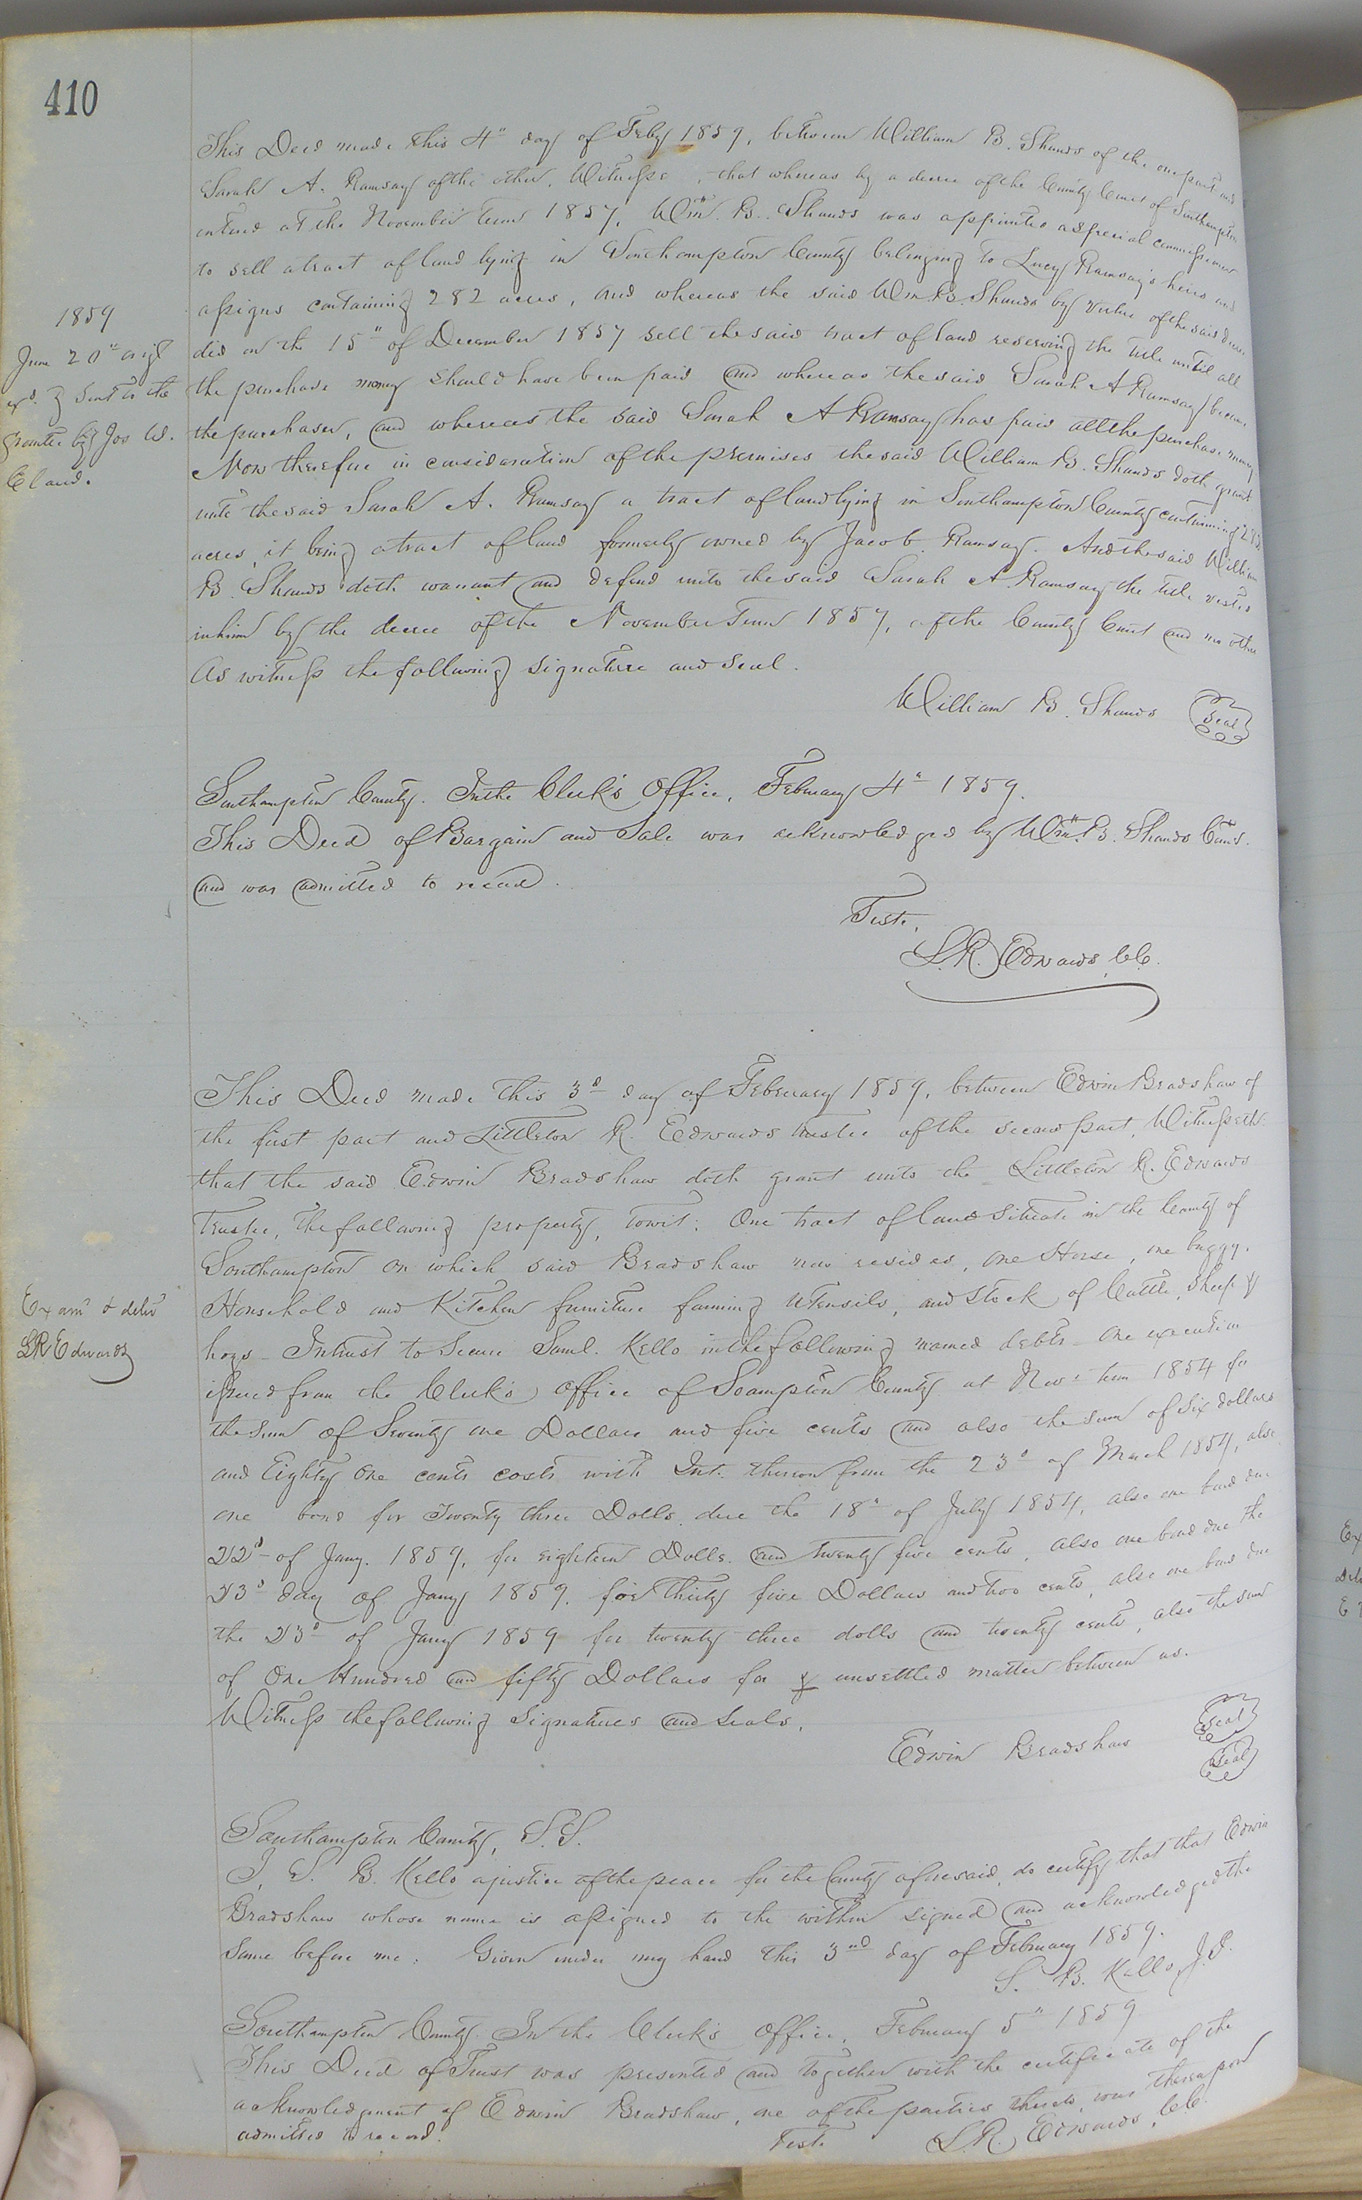 410
This Deed made this 4" day of Feby 1859, between William B. Shands of the one part and
Sarah A. Ramsay of the other, Witnesse, that whereas by a decree of the County Court of Southampton
entered at the November term 1857, Wm. B. Shands was appointed a special commissioner
to sell a tract of land lying in Southampton County belonging to Lucy Ramsay's heirs and
assigns containing 282 acres, and whereas the said Wm B. Shands by virtue of the said decree
did on the 15" of December 1857 sell the said tract of land reserving the title until all
the purchase money should have been paid and whereas the said Sarah A Ramsay became
the purchaser, and whereas the said Sarah A Ramsay has paid all the purchase money
Now therefore in consideration of the premises the said William B. Shands doth grant
unto the said Sarah A. Ramsay a tract of land lying in Southampton County containing 282
acres, it being a tract of land formerly owned by Jacob Ramsay. And the said William
B. Shands doth warrant and defend unto the said Sarah A Ramsay the title vested
in him by the decree of the November Term 1857, of the County Court and no other
As witness the following signature and seal.
William B. Shands Seal
1859
June 20th origl
exd. & sent to the
grantee by Jos W.
Claud.
Southampton County. In the Clerk's Office, February 4" 1859.
This Deed of Bargain and Sale was acknowledged by Wm. B. Shands Comr.
and was admitted to record.
Teste,
L.R. Edwards, C.C.
This Deed made this 3d day of February 1859, between Edwin Bradshaw of
the first part and Littleton R. Edwards trustee of the second part, Witnesseth
that the said Edwin Bradshaw doth grant unto the Littleton R. Edwards
Trustee, the following property, towit: One tract of land situate in the County of
Southampton on which said Bradshaw now resides, one Horse, one buggy,
Household and Kitchen furniture farming utensils, and stock of Cattle, sheep &
hogs - In trust to secure Saml. Kello in the following named debts - One execution
issued from the Clerk's Office of Soampton County at Nov: term 1854 for
the sum of Seventy one Dollars and five cents and also the sum of six dollars
and Eighty One cents costs with Int. thereon from the 23d of March 1854, also
one bond for Twenty three Dolls. due the 18" of July 1854, also one bond due
22d of Jany. 1859, for eighteen Dolls. and twenty five cents, also one bond due the
23d day of Jany 1859, for Thirty five Dollars and two cents, also one bond due
the 23d of Jany 1859 for twenty three dolls and twenty cents, also the sum
of One Hundred and fifty Dollars for & unsettled matter between us.
Witness the following signatures and seals.
Edwin Bradshaw Seal
Seal
Examd & delivd
LR Edwards
Southampton County, S.S.
I, S. B. Kello a justice of the peace for the County aforesaid, do certify that that Edwin
Bradshaw whose name is assigned to the within signed and acknowledged the
same before me. Given under my hand this 3nd day of February 1859.
S. B. Kello, J.P.
Southampton County In the Clerk's Office, February 5" 1859
This Deed of Trust was presented and together with the certificate of the
acknowledgment of Edwin Bradshaw, one of the parties thereto, was thereupon
admitted to record.
Teste L.R. Edwards, C.C.
Ex